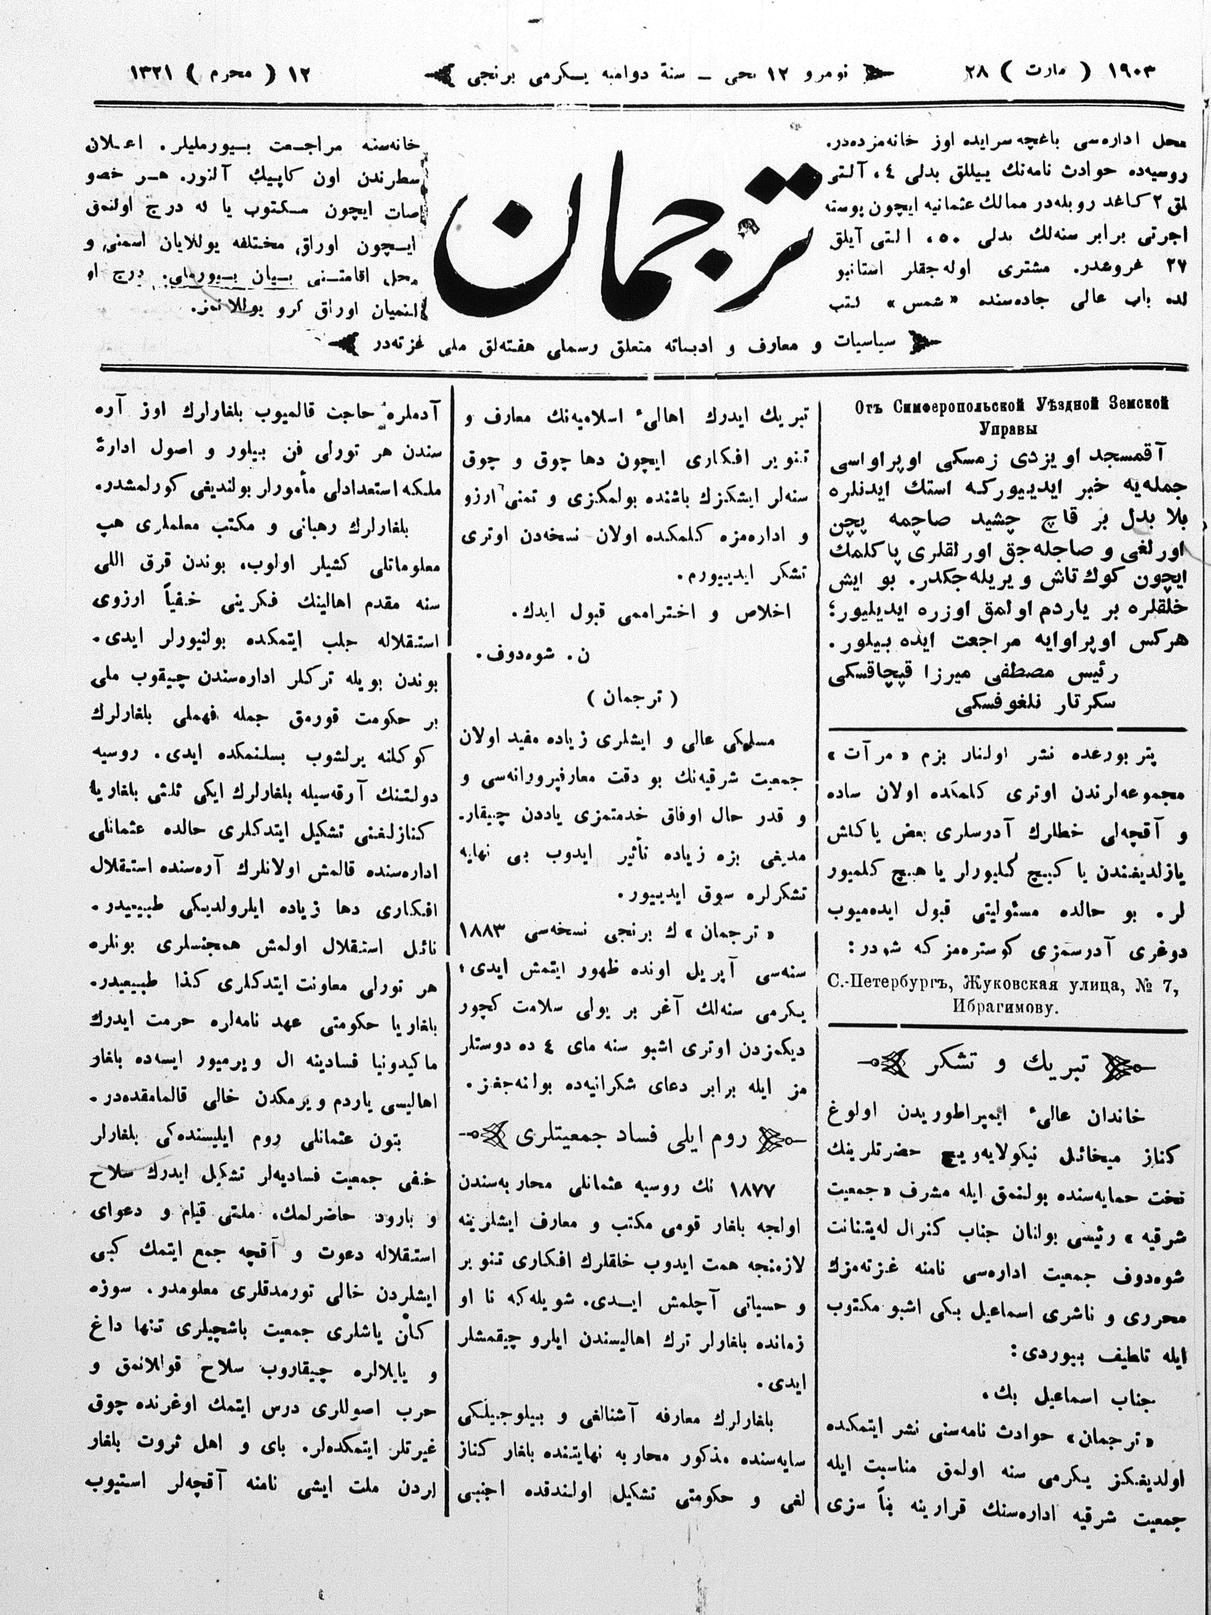 ١٩٠٣ ( مارت ) ٢٨
نومرو ١٢ نجى ــ سنهٔ دواميه يكرمى برنجى
١٢ ( محرم ) ١٣٢١
محل اداره‌سى باغچه سرايده اوز خانه‌مزده‌در.
روسيه‌ده حوادث نامه‌نك ييللق بدلى ٤، آلتى
لمق ٢ كاغد روبله‌در ممالك عثمانيه ايچون پوسته
اجرتى برابر سنه‌لك بدلى ٥٠، التى آيلق
٢٧ غروشدر. مشترى اوله‌جقلر استانبو
لده باب عالى جاده‌سنده «شمس» كتب
ترجمان
خانه‌سنه مراجعت بيورمليلر. اعلان
سطرندن اون كاپيك آلنور. هر خصو
صات ايچون مكتوب يا له درج اولنمق
ايچون اوراق مختلفه يوللايان اسمنى و
محل اقامتنى بيان بيورملى. درج او
لنميان اوراق كرو يوللانمز.
سياسيات و معارف و ادبياته متعلق رسملى هفته‌لق ملى غزته‌در
Отъ Симферопольской Уѣздной Земской
Управы
آقمسجد اويزدى زمسكى اوپراواسى
جمله‌يه خبر ايدييوركه استك ايدنلره
بلا بدل بر قاچ چشيد صاچمه پچن
اورلغى و صاجله‌جق اورلقلرى پاكلمك
ايچون كوك تاش ويريله‌جكدر. بو ايش
خلقلره بر ياردم اولمق اوزره ايديليور؛
هركس اوپراوايه مراجعت ايده بيلور.
رئيس مصطفى ميرزا قپچاقسكى
سكرتار نلغوفسكى
پتربورغده نشر اولنار بزم «مرآت»
مجموعه‌لرندن اوترى كلمكده اولان ساده
و آقچه‌لى خطلرك آدرسلرى بعض ياكلش
يازلديغندن يا كيچ كليورلر يا هيچ كلميور
لر. بو حالده مسئوليتى قبول ايده‌ميوب
دوغرى آدرسمزى كوستره‌مز كه شودر:
С.-Петербургъ, Жуковская улица, № 7,
Ибрагимову.
تبريك و تشكر
خاندان عالىء ايمپراطوريدن اولوغ
كناز ميخائيل نيكولايه‌ويچ حضرتلرينك
تخت حمايه‌سنده بولنمق ايله مشرف «جمعيت
شرقيه» رئيسى بولنان جناب كنرال له‌يتنانت
شوه‌دوف جمعيت اداره‌سى نامنه غزته‌مزك
محررى و ناشرى اسماعيل بكى اشبو مكتوب
ايله تلطيف بيوردى:
جناب اسماعيل بك.
«ترجمان» حوادث نامه‌سنى نشر ايتمكده
اولديغكز يكرمى سنه اولمق مناسبت ايله
جمعيت شرقيه اداره‌سنك قرارينه بناً سزى
تبريك ايدرك اهالىء اسلاميه‌نك معارف و
تنوير افكارى ايچون دها چوق و چوق
سنه‌لر ايشكزك باشنده بولمكزى و تمنى ارزو
و اداره‌مزه كلمكده اولان نسخه‌دن اوترى
تشكر ايدييورم.
اخلاص و احتراممى قبول ايدك.
ن. شوه‌دوف.
( ترجمان )
مسلكى عالى و ايشلرى زياده مفيد اولان
جمعيت شرقيه‌نك بو دقت معارفپرورانه‌سى و
و قدر حال اوفاق خدمتمزى ياددن چيقار.
مديغى بزه زياده تأثير ايدوب بى نهايه
تشكرلره سوق ايدييور.
«ترجمان» ك برنجى نسخه‌سى ١٨٨٣
سنه‌سى آپريل اونده ظهور ايتمش ايدى؛
يكرمى سنه‌لك آغر بر يولى سلامت كچور
ديكمزدن اوترى اشبو سنه ماى ٤ ده دوستلر
مز ايله برابر دعاى شكرانيه‌ده بولنه‌جغز.
روم ايلى فساد جمعيتلرى
١٨٧٧ نك روسيه عثمانلى محاربه‌سندن
اولجه بلغار قومى مكتب و معارف ايشلرينه
لازمنجه همت ايدوب خلقلرك افكارى تنوير
و حسياتى آچلمش ايدى. شويله‌كه تا او
زمانده بلغارلر ترك اهاليسندن ايلرو چيقمشلر
ايدى.
بلغارلرك معارفه آشنالغى و بيلوجيلكى
سايه‌سنده مذكور محاربه نهايتنده بلغار كناز
لغى و حكومتى تشكيل اولندقده اجنبى
آدملره حاجت قالميوب بلغارلرك اوز آره
سندن هر تورلى فن بيلور و اصول ادارهٔ
ملكه استعدادلى مأمورلر بولنديغى كورلمشدر.
بلغارلرك رهبانى و مكتب معلملرى هپ
معلوماتلى كشيلر اولوب، بوندن قرق اللى
سنه مقدم اهالينك فكرينى خفياً ارزوى
استقلاله جلب ايتمكده بولنيورلر ايدى.
بوندن بويله تركلر اداره‌سندن چيقوب ملى
بر حكومت قورمق جمله فهملى بلغارلرك
كوكلنه يرلشوب بسلنمكده ايدى. روسيه
دولتنك آرقه‌سيله بلغارلرك ايكى ثلثى بلغاريا
كنازلغنى تشكيل ايتدكلرى حالده عثمانلى
اداره‌سنده قالمش اولانلرك آره‌سنده استقلال
افكارى دها زياده ايلرولديكى طبيعيدر.
نائل استقلال اولمش همجنسلرى بونلره
هر تورلى معاونت ايتدكلرى كذا طبيعيدر.
بلغاريا حكومتى عهد نامه‌لره حرمت ايدرك
ماكيدونيا فسادينه ال ويرميور ايسه‌ده بلغار
اهاليسى ياردم ويرمكدن خالى قالمامقده‌در.
بتون عثمانلى روم ايليسنده‌كى بلغارلر
خفى جمعيت فساديه‌لر تشكيل ايدرك سلاح
و بارود حاضرلمك، ملتى قيام و دعواى
استقلاله دعوت و آقچه جمع ايتمك كبى
ايشلردن خالى تورمدقلرى معلومدو. سوزه
كلن ياشلرى جمعيت باشچيلرى تنها داغ
و يايلالره چيقاروب سلاح قوللانمق و
حرب اصوللرى درس ايتمك اوغرنده چوق
غيرتلر ايتمكده‌لر. باى و اهل ثروت بلغار
لردن ملت ايشى نامنه آقچه‌لر استيوب